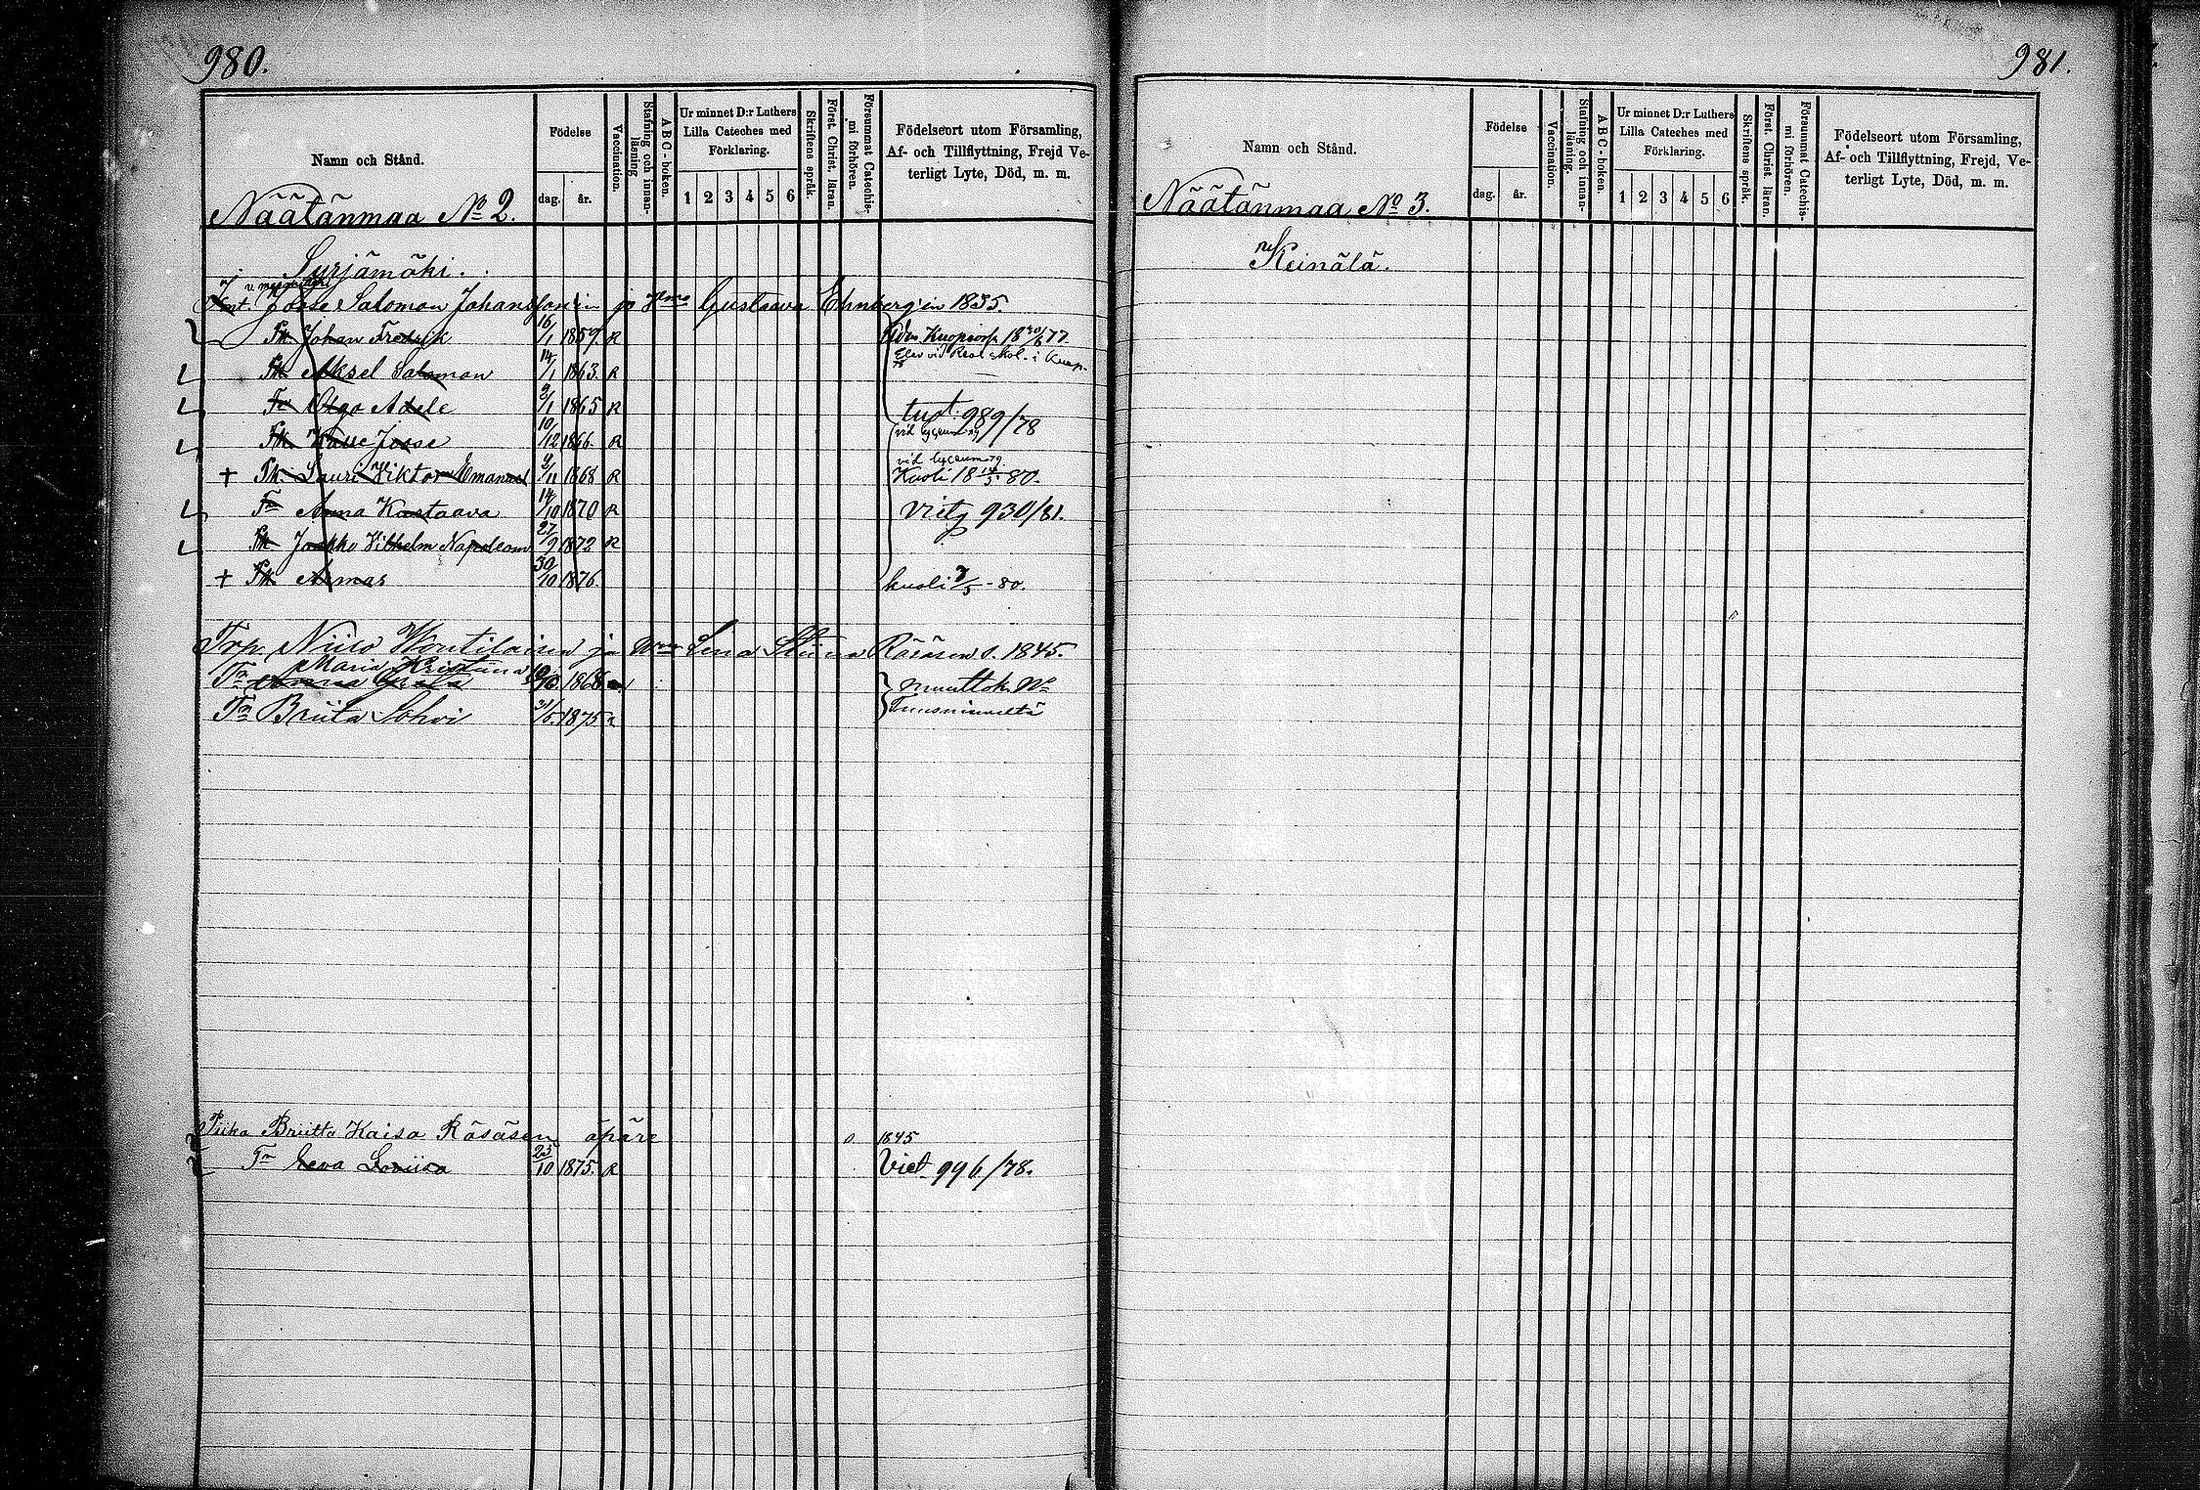 980.
Namn och Stånd.
Födelse
dag. år.
Vaccination.
Stafning och innanläsning
ABC-boken.
Ur minnet D:r Luthers Lilla Cateches med Förklaring.
1 2 3 4 5 6
Skriftens språk.
Först. Christ. läran.
Försummat Catechismi förhören.
Födelseort utom Församling,
Af- och Tillflyttning, Frejd Ve-
terligt Lyte, Död, m. m.
Näätänmaa No 2.
Syrjämäki.
Josse Salomon Johansson'in ja Gustaava Ehnberg'in 1835.
Pk Johan Fredrik 16/1 1859 R
Pk Aksel Salomon 14/1 1863. R
Tr Olga Adele 2/1 1865 R tust. 989/78
Pk Josse 10/12 1866. R
+ Pk. Lauri Viktor Emanuel 1868 R Kuoli 18 80.
Tr Anna Kustaava 14/10 1870 R vietg 930/81.
Pk Vilhelm Napoleon 27/9 1872 R
+ Pk Armas 30/10 1876. kuoli 80.
Niilo Vontilaisen ja Lena Stiina Räsäsen s. 1845.
Maria Kristiina
Tr 1868
Tr Briita Sohvi 1875 muuttok.
Piika Briitta Kaisa Räsäsen äpäre 0 1845
Tr Eeva Loviisa 25/10 1875. R Viet. 996/78.
981.
Namn och Stånd.
Födelse
dag. år.
Vaccination.
Stafning och innanläsning.
ABC-boken.
Ur minnet D:r Luthers Lilla Cateches med Förklaring.
1 2 3 4 5 6
Skriftens språk.
Först. Christ. läran.
Försummat Catechismi förhören.
Födelseort utom Församling,
Af- och Tillflyttning, Frejd, Ve-
terligt Lyte, Död, m. m.
Näätänmaa No 3.
Keinälä.